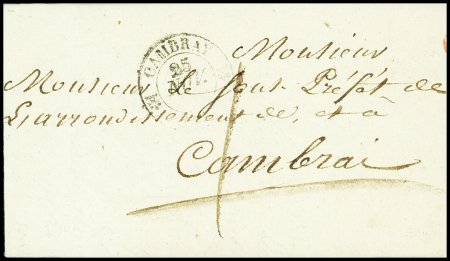 CAMBRAY
25
NOV.
Monsieur
Monsieur le Sous-Préfét de
L'arrondissement de, et à
Cambrai
1